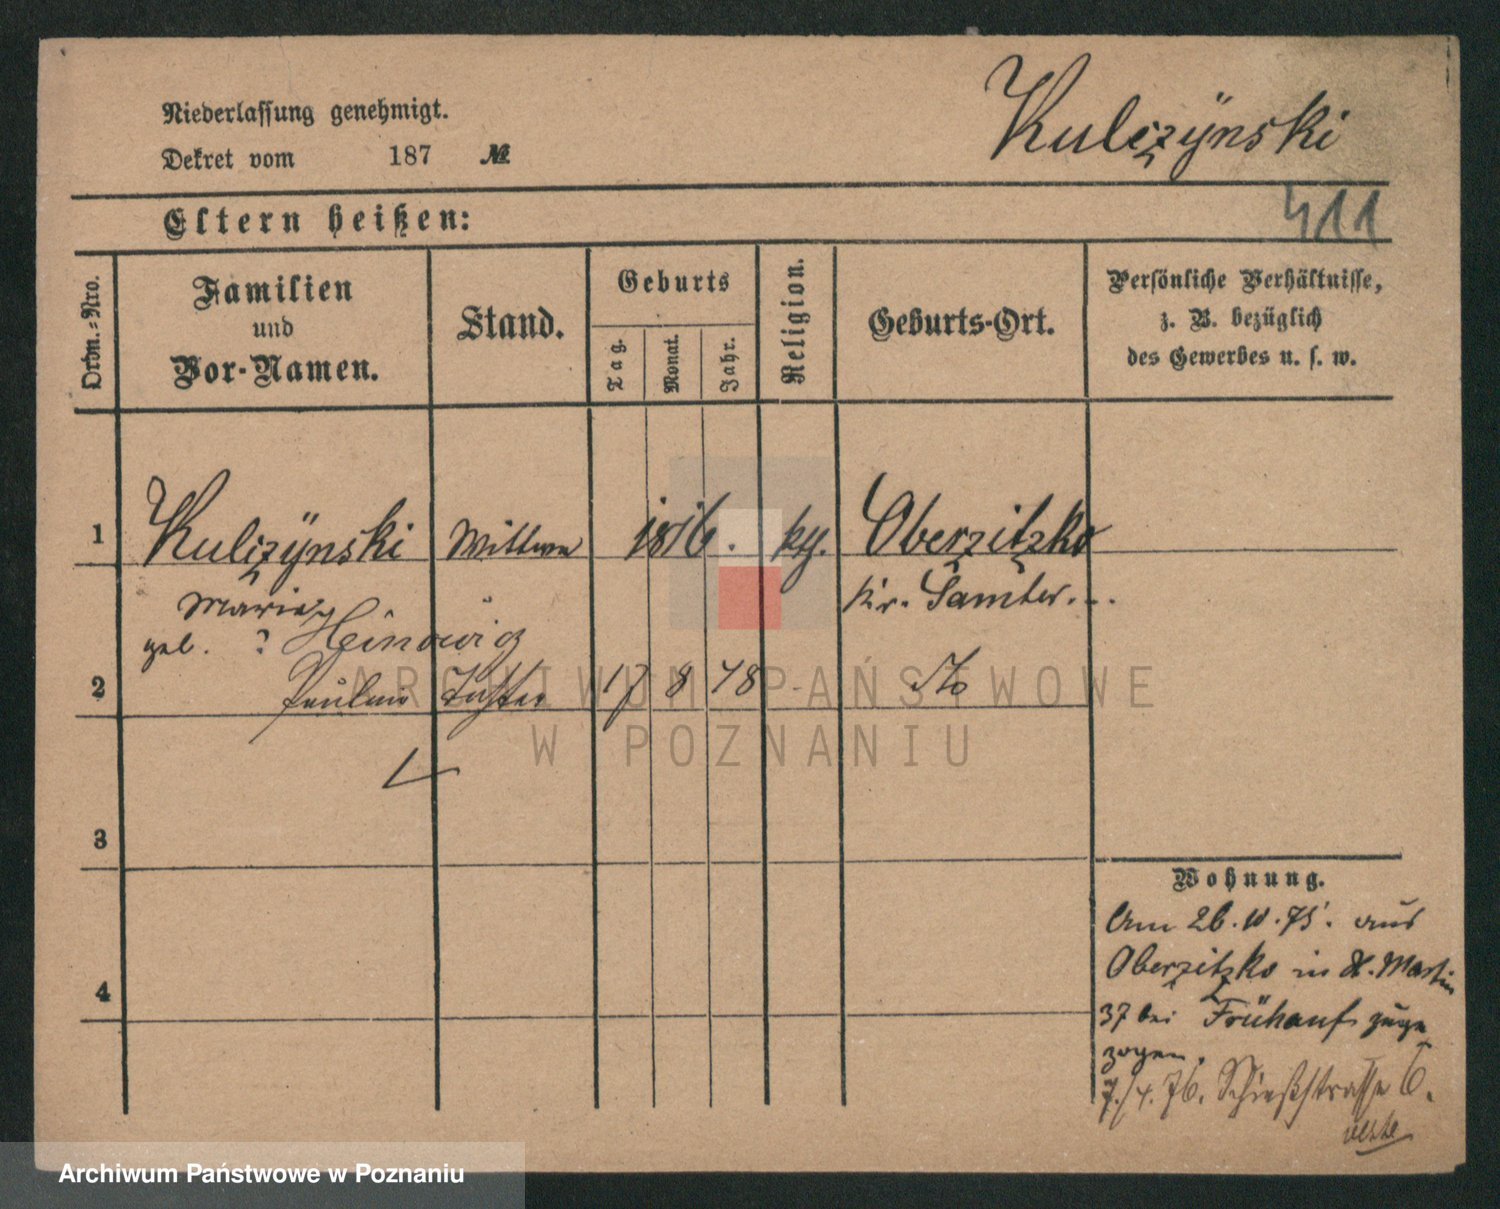 Niederlassung genehmigt.
Dekret vom 187 №
Kulczÿnski
411
Eltern heißen:
Ordn.-Nro.
Familien
und
Vor-Namen.
Stand.
Geburts
Tag.
Monat.
Jahr.
Religion.
Geburts-Ort.
Persönliche Verhältnisse,
z. B. bezüglich
des Gewerbes u. s. w.
1 Kulczÿnski Wittwe 1816. kg. Oberzitzko
Maria Kr. Samter.
geb. ?
2 17 8 48
3
4
Wohnung.
Am 26.10.75. aus
Oberzitzko in St. Martin
37 bei Frühauf zuge
zogen.
7./4. 76. Schießstrasse 6.
ARCHIWUM PAŃSTWOWE
W POZNANIU
Archiwum Państwowe w Poznaniu